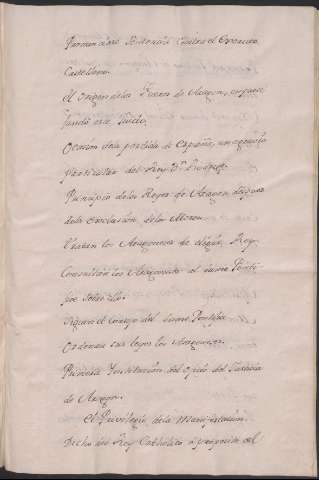 el Exercito
Castellano.
El origen de los Fueros de Aragon, en que se
fundó este Juicio.
Ocasion de la perdida de España, un agravio
particular del Rey Dn. Rodrigo.
Principio de los Reyes de Aragon despues
de la de los Moros.
Tratan los Aragoneses de elegir Rey.
Consultan los Aragoneses al Sumo Ponti-
fice sobre ello.
Siguen el Consejo del Sumo Pontifice.
Ordenan sus leyes los Aragoneses.
Primera Institucion del oficio del Justicia
de Aragon.
El Privilegio de la Manifestacion.
Dicho del Rey Catholico a proposito del